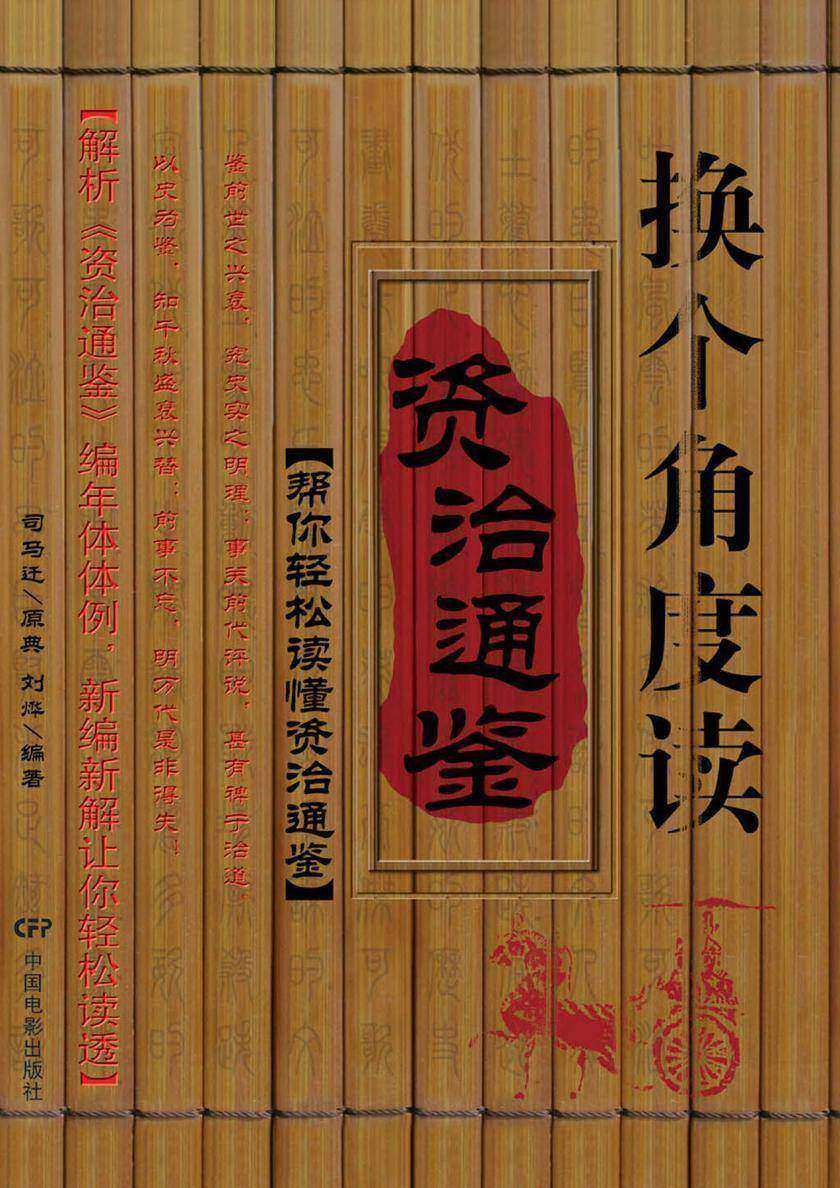 换个角度读
资治通鉴
【帮你轻松读懂资治通鉴】
鉴前世之兴衰，究史实之明湮；事关前代评说，甚有裨于治道。
以史为鉴，知千秋盛衰兴替；前事不忘，明万代是非得失！
【解析《资治通鉴》编年体体例，新编新解让你轻松读透】
司马迁/原典 刘烨/编著
CFP 中国电影出版社